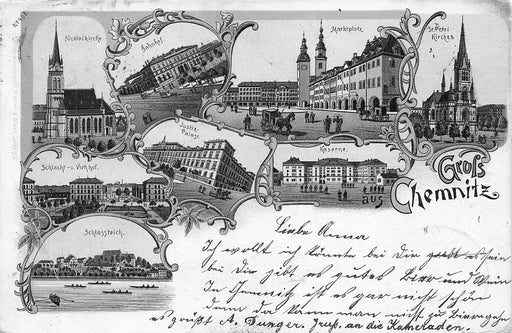 Nicolaikirche.
Bahnhof.
Marktplatz.
St. Petri
Kirche.
Justiz-
Palast.
Kaserne.
Schlacht- u. Viehhof.
Schlossteich.
Gruß
aus
Chemnitz
Liebe Anna
Ich wollt ich könnte bei Dir sein
bei Dir gibt es gutes Bier und Wein
In Chemnitz ist es gar nicht schön
denn da kann man nicht zu
es grüßt A. Gruß an die Kameraden.